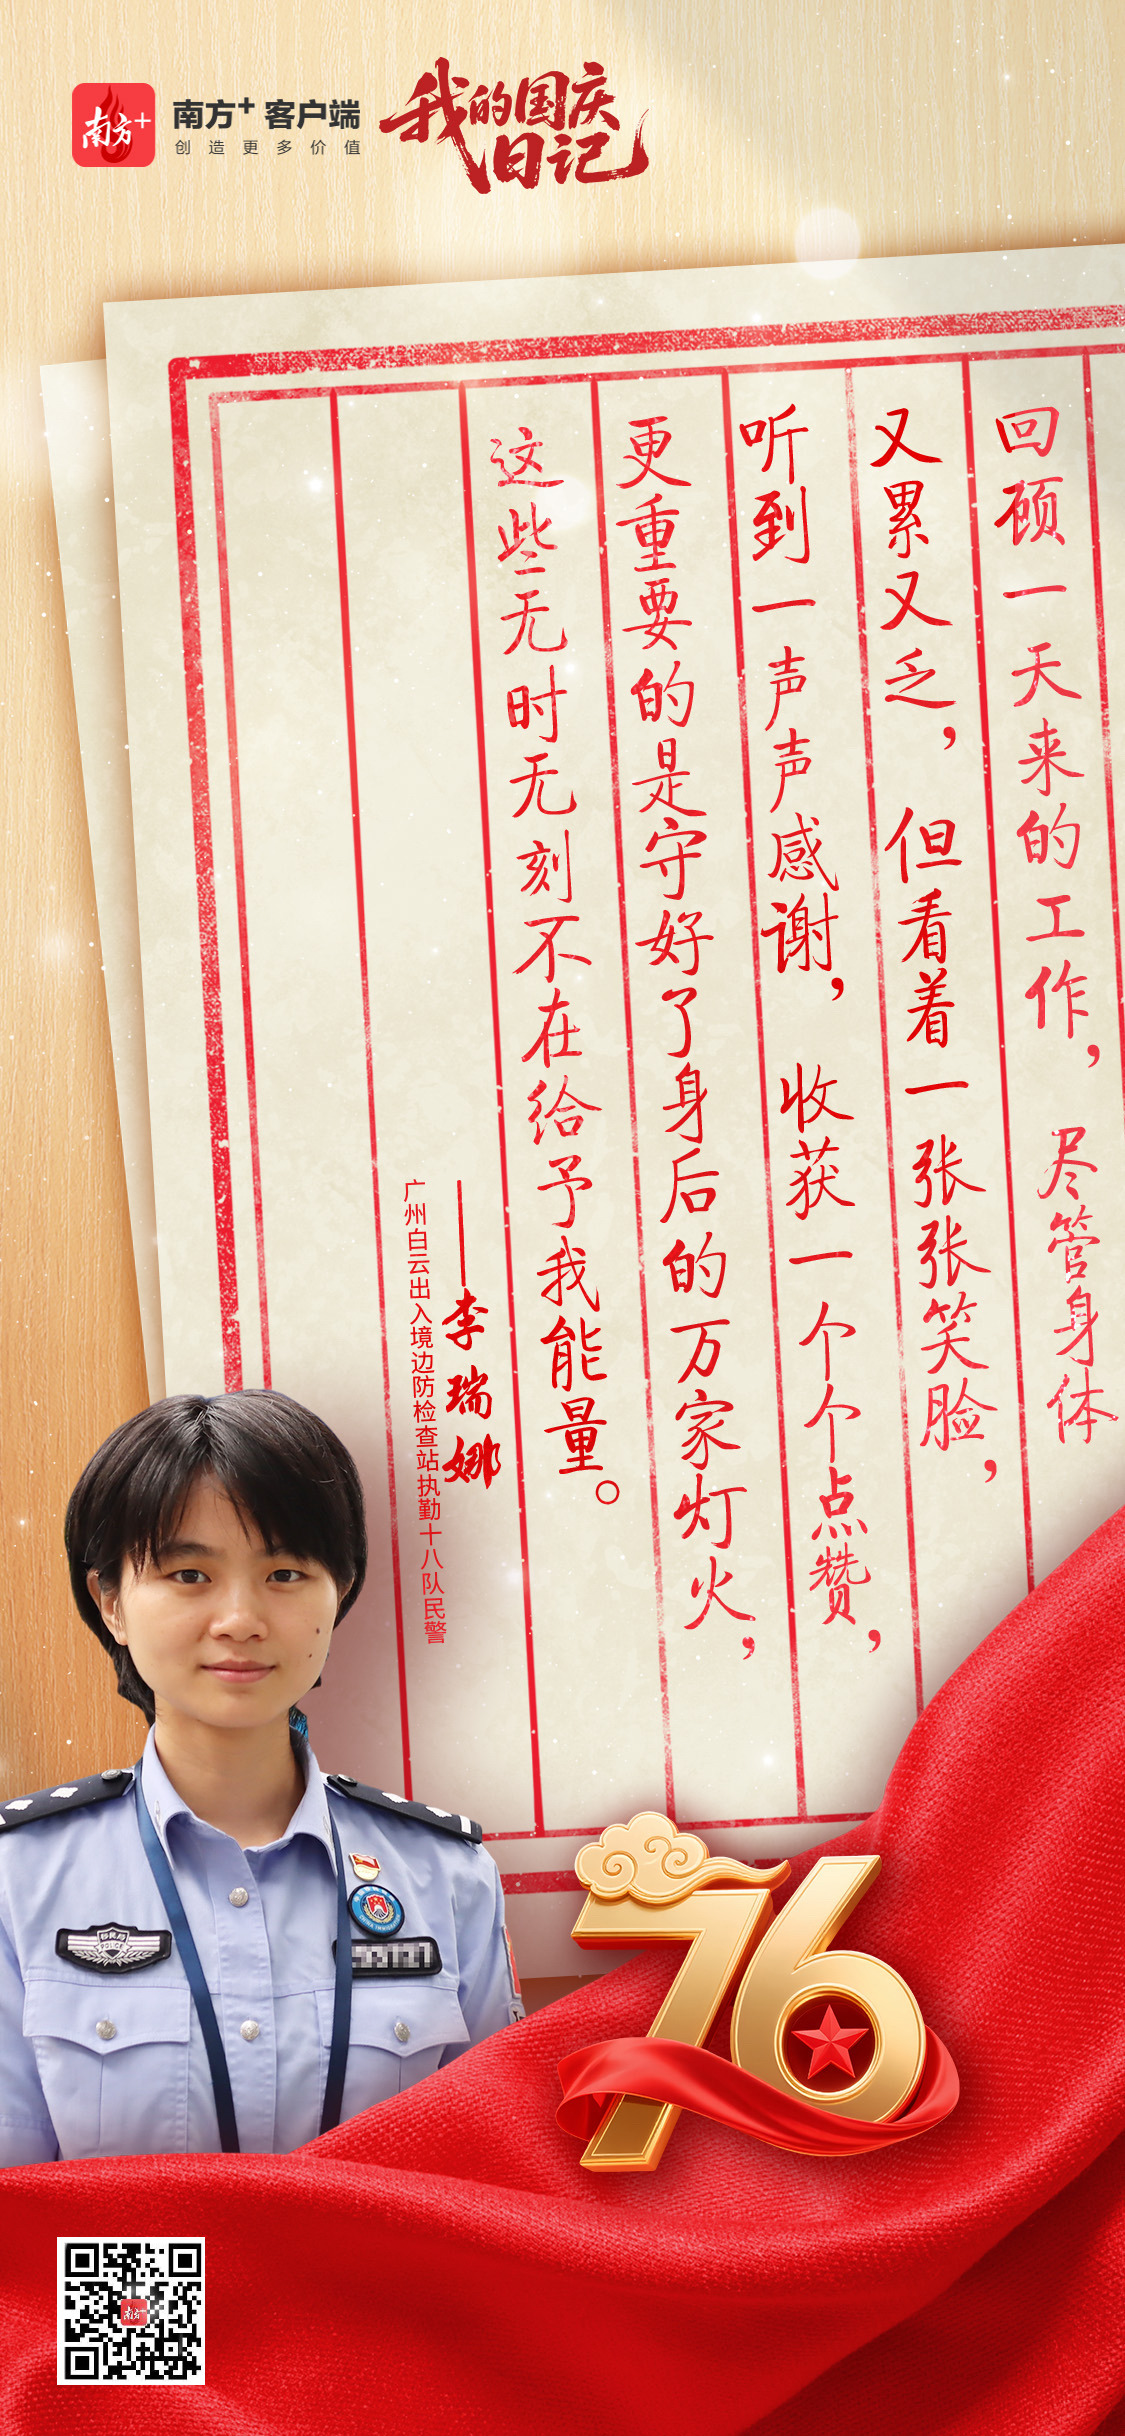 南方+
南方+ 客户端
创造更多价值
我的国庆
日记
回顾一天来的工作，尽管身体
又累又乏，但看着一张张笑脸，
听到一声声感谢，收获一个个点赞，
更重要的是守好了身后的万家灯火，
这些无时无刻不在给予我能量。
——李瑞娜
广州白云出入境边防检查站执勤十八队民警
POLICE
76
南方+